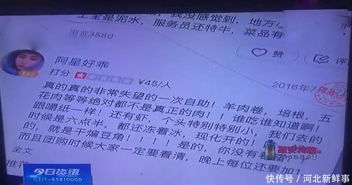 全是泥水，我没感觉到，地方
服务员还特牛，菜品有
浏览3580
赞
评论
阿星好乖
打分
¥48/人
2016年7月
真的真的非常失望的一次自助！羊肉卷，培根，五
花肉等等绝对都不是真正的肉！！谁吃谁知道啊！
跟嚼纸一样！还有虾，个头特别特别小，我们去的
时候是六点半，都还冻着冰，现化开的！
的，就是干煸豆角！！！是的，你没有看
而且团购时候大家一定要看清，晚上每位还要加
全文
今日资讯
0311-85810000
推荐
快传号 / 河北新鲜事